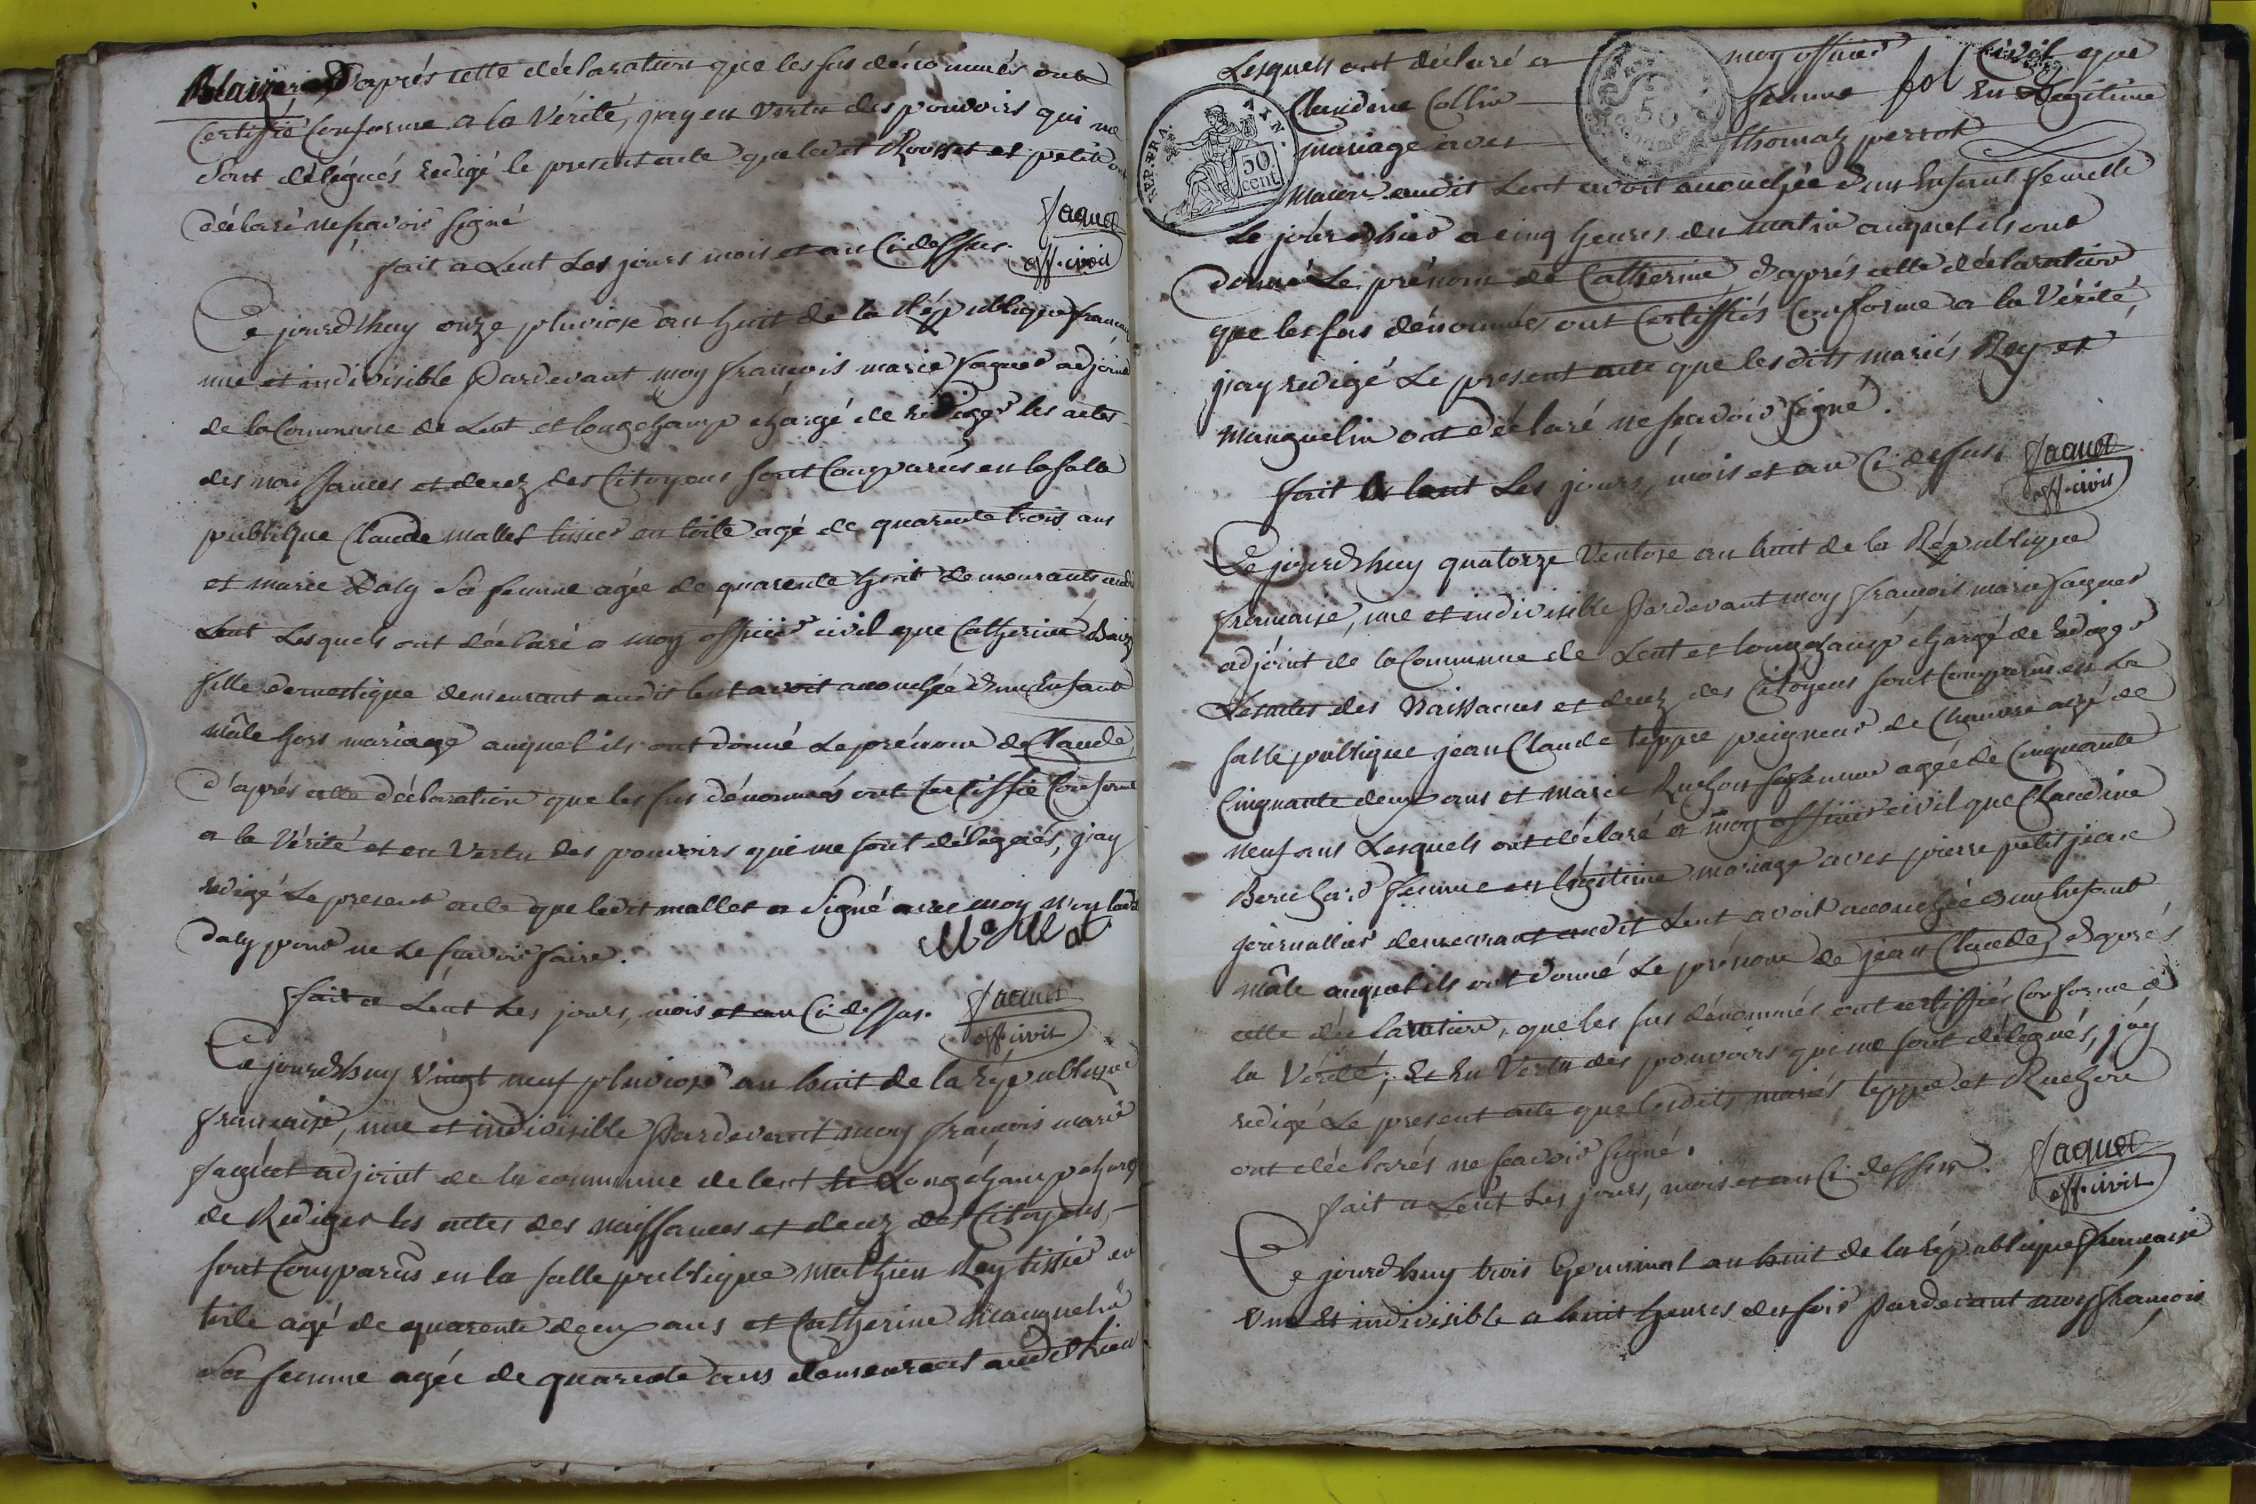 Blaise D'aprés cette déclaration que les sus dénommés ont
Certifié Conforme a la Vérité, jay en Vertu des pouvoirs qui me
Sont délégués redigé le present acte que ledit Rousset et petit ont
déclaré ne scavoir signé
fait a Lent Les jours mois et an Ci dessus. Jaquet
off. civil
Ce jourdhuy onze pluviose an huit de la République francai
une et indivisible Pardevant moy francois marie Jaquet adjoint
de la Commune de Lent et longchamp chargé de rediger les actes
des naissances et decez des Citoyens sont Comparus en la salle
publique Claude mallet tissier en toile agé de quarente trois ans
et marie Daly Sa femme agée de quarente huit demeurants audit
Lent Lesquels ont déclaré a moy officier civil que Catherine
fille domestique demeurant audit lent avoit accouchée d'un Enfant
mâle hors mariage auquel ils ont donné Le prénom de Claude,
d'aprés cette déclaration que les sus dénommés ont Certiffié Conforme
a la Vérité et en Vertu des pouvoirs qui me sont délégués, jay
redigé Le present acte que ledit mallet a Signé avec moy non ladit
daly pour ne Le scavoir faire. Mallet
fait a Lent Les jours, mois et an Ci dessus. Jaquet
off. civil
Ce jourdhuy Vingt neuf pluviose an huit de la République
francaise, une et indivisible Pardevant moy francois marie
Jaquet adjoint de la commune de lent et Longchamp chargé
de Rediger les actes des naissances et decez des Citoyens,
sont Comparus en la salle publique Mathieu Rey tissie en
toile agé de quarente deux ans et Catherine Manguelin
Sa femme agée de quarente ans demeurant audit lieu
Lesquels ont déclaré a moy officier Civil que
Claudine Collin femme fol En Legitime
mariage avec thomas perrot
audit Lent avoit accouchée d'un Enfant femelle
Le jour d'hier a cinq heures du matin auquel ils ont
donné Le prénom de Catherine d'aprés cette déclaration
que les sus dénommés ont Certiffiés Conforme a la Vérité,
jay redigé Le present acte que les dits mariés Rey et
Manguelin ont déclaré ne scavoir signé.
fait a lent Les jours, mois et an Ci dessus, Jaquet
off. civil
Ce jourdhuy quatorze Ventose an huit de la République
francaise, une et indivisible Pardevant moy francois marie Jaquet
adjoint de la Commune de Lent et longchamp chargé de rediger
Les actes des Naissances et decez des Citoyens sont Comparus en La
salle publique jean Claude teppe peigneur de Chanvre agé de
Cinquante deux ans et Marie Ruchon sa femme agée de Cinquante
neuf ans Lesquels ont déclaré a moy officier civil que Claudine
Berichard femme en légitime mariage avec pierre petit jean
journallier demeurant audit Lent avoit accouchée d'un Enfant
mâle auquel ils ont donné Le prénom de jean Claude, d'aprés
cette déclaration, que les sus dénommés ont certiffiés Conforme à
la Vérité, Et En Vertu des pouvoirs qui me sont délegués, j'ay
redigé Le present acte que lesdits mariés teppe et Ruchon
ont déclarés ne scavoir signé.
fait a Lent Les jours, mois et an Ci dessus. Jaquet
off. civil
Ce jourdhuy trois Germinal an huit de la République francaise
Une Et indivisible a huit heures du soir Pardevant moy francois
REP. FRA.
AYN.
50
cent.
50